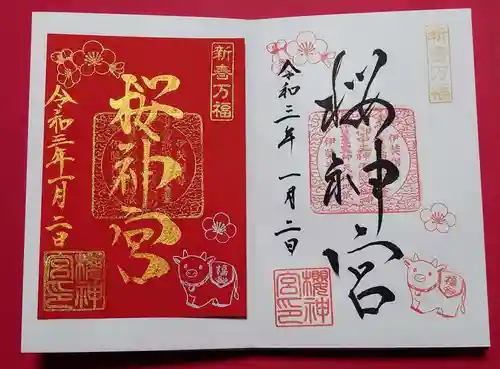 新春万福
桜神宮
令和三年 一月二日
櫻神
宮印
新春万福
桜神宮
令和三年一月二日
櫻神
宮印